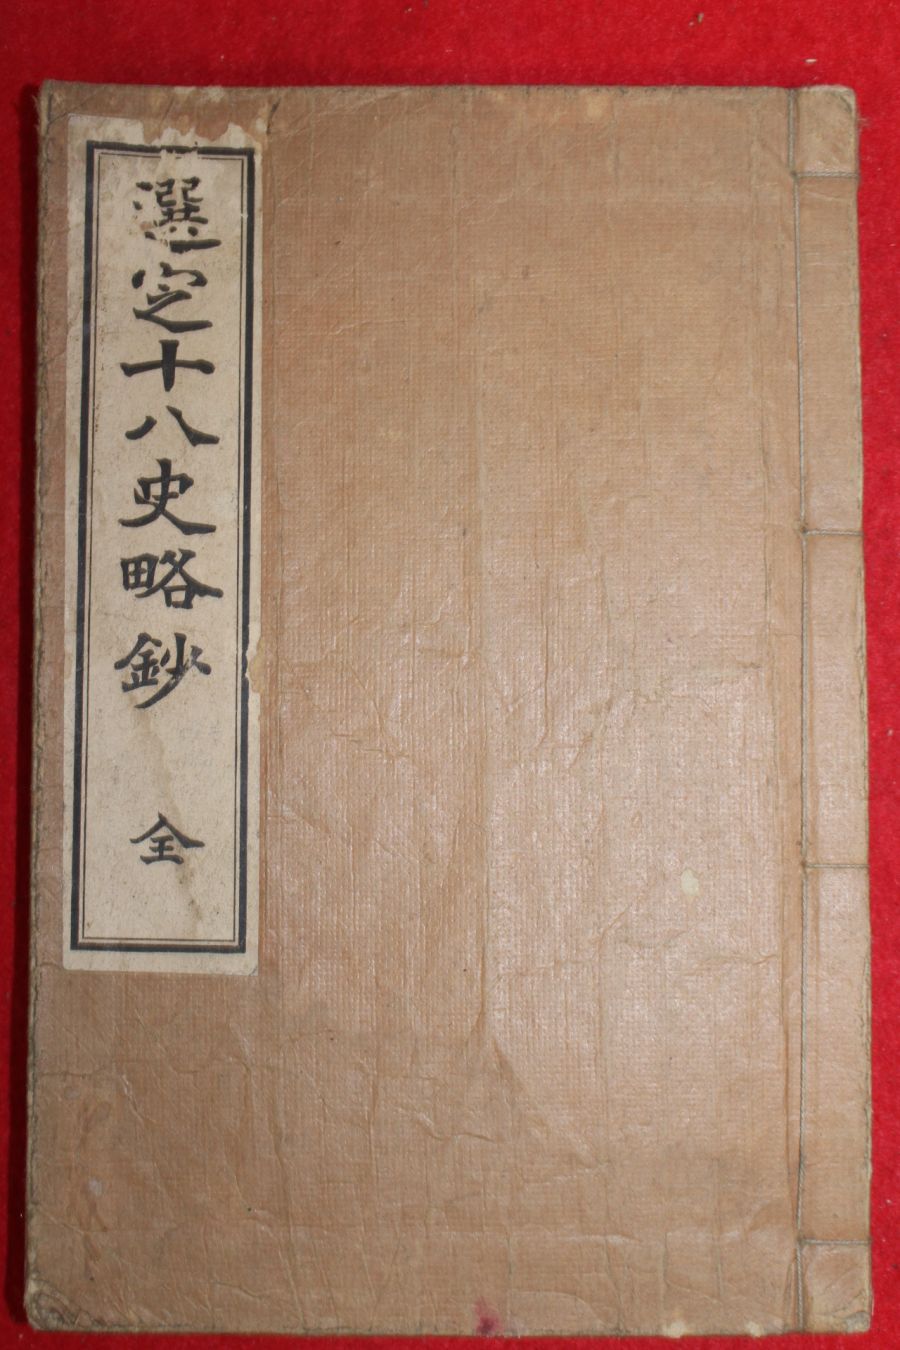 選定十八史略鈔 全